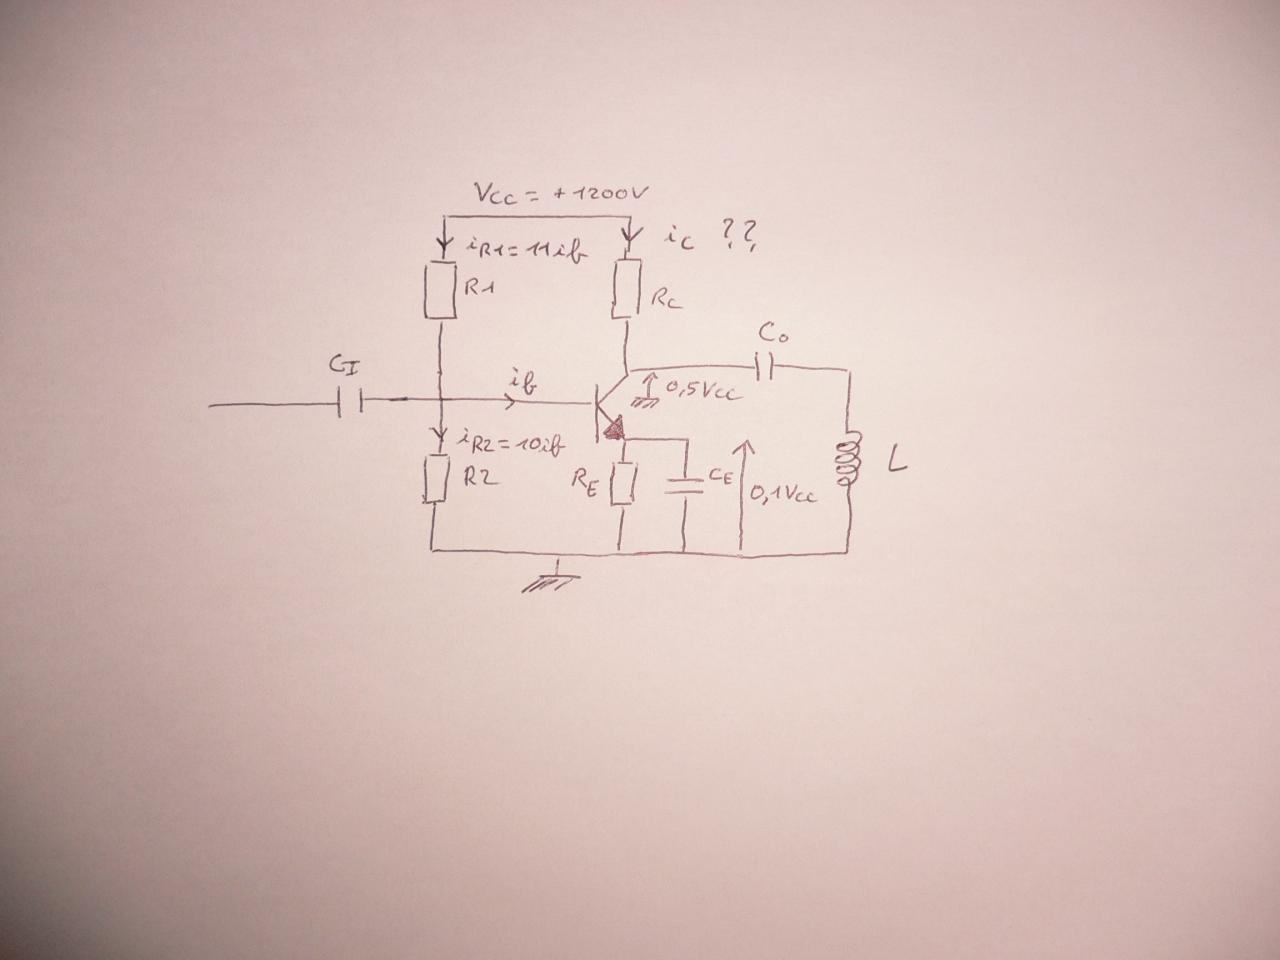 Vcc = +1200V
iR1=11ib
ic ??
R1
Rc
Co
CI
ib
0,5Vcc
iR2=10ib
R2
RE
CE
0,1Vcc
L